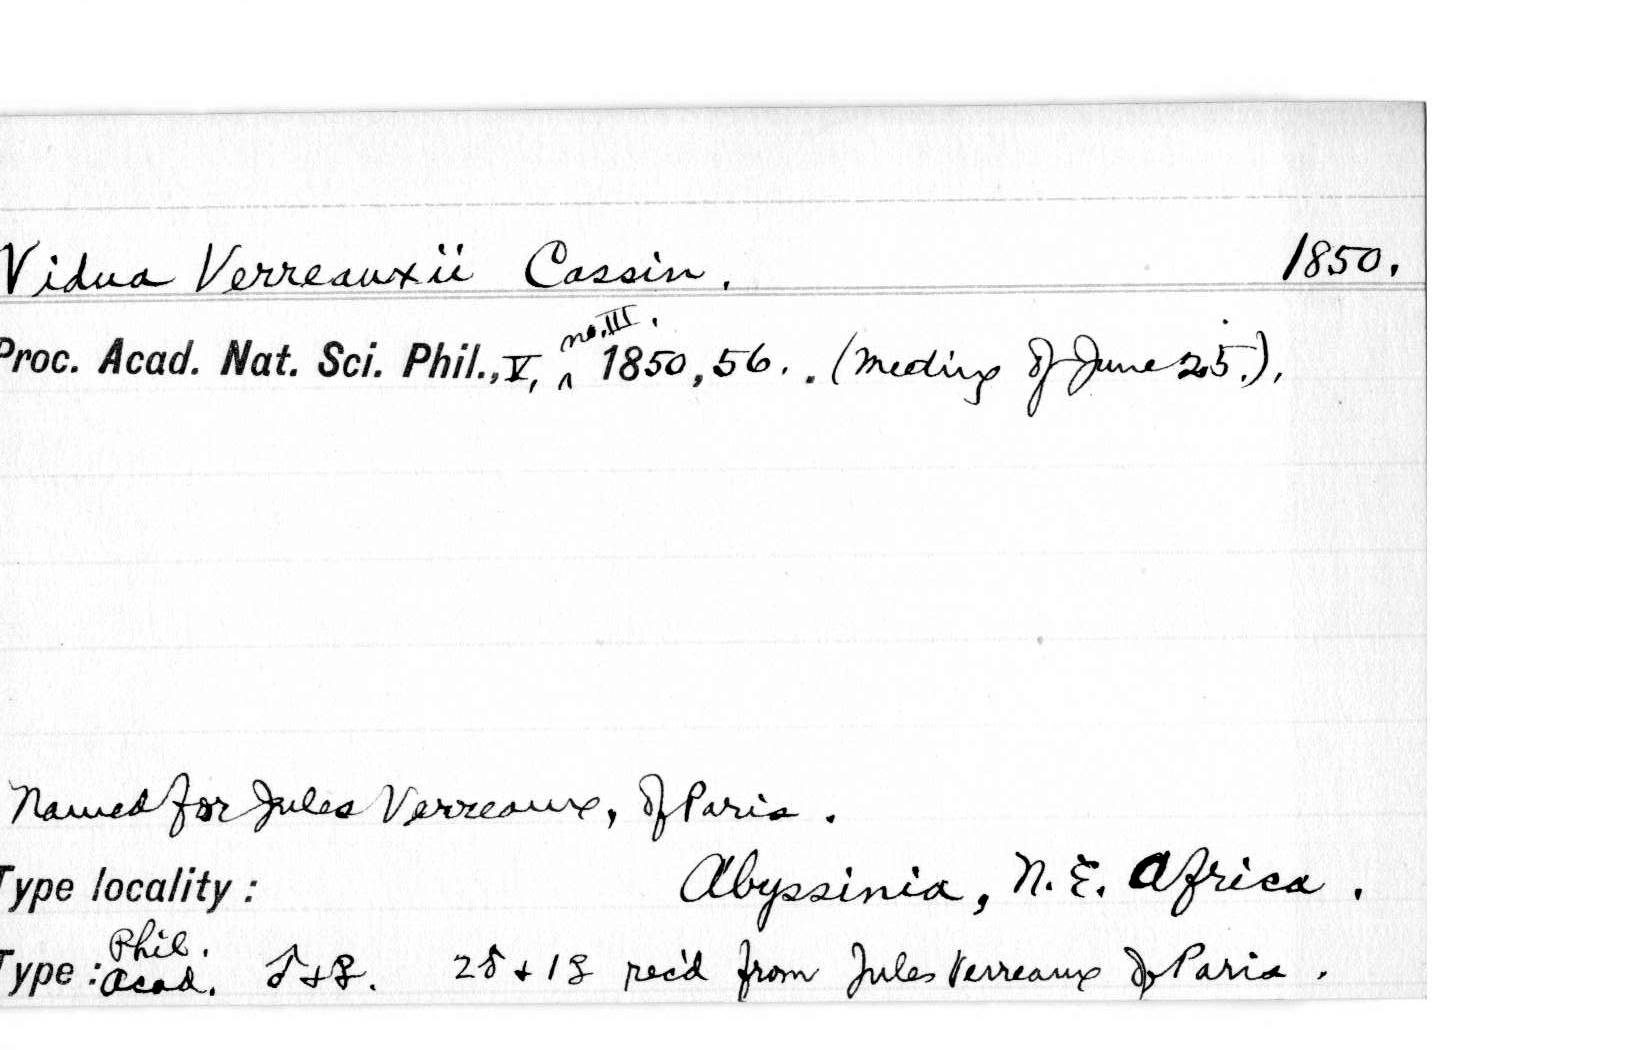 Vidua Verreauxii Cassin. 1850.
Proc. Acad. Nat. Sci. Phil., V, no. III. 1850, 56. . (Meeting of June 25.).
Named for Jules Verreaux, of Paris.
Type locality: Abyssinia, N. E. Africa.
Type: Phil. Acad. ♂ + ♀. 2♂ + 1♀ rec'd from Jules Verreaux of Paris.